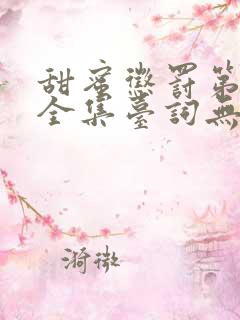 甜蜜懲罰第
全集臺詞無
漪微